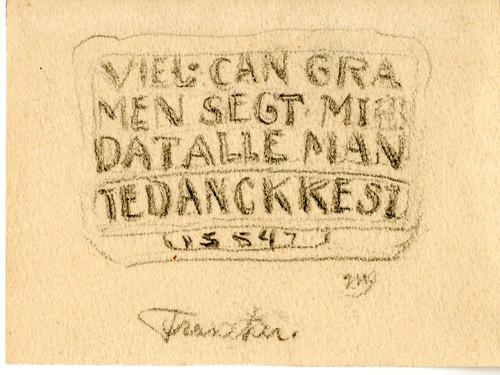 VIEL·CAN GRA
MEN SEGT MI
DATALLE MAN
TEDANCKKESI
1547
Franeker.